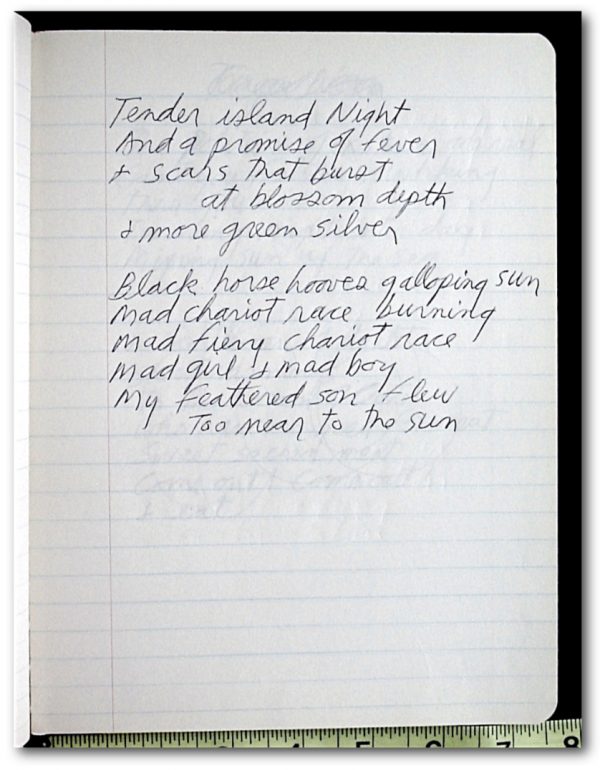 Tender island Night
And a promise of fever
& scars that burst
at blossom depth
& more green silver
Black horse hooves galloping sun
Mad chariot race burning
Mad fiery chariot race
Mad girl & mad boy
My feathered son flew
Too near to the sun
4 5 6 7 8